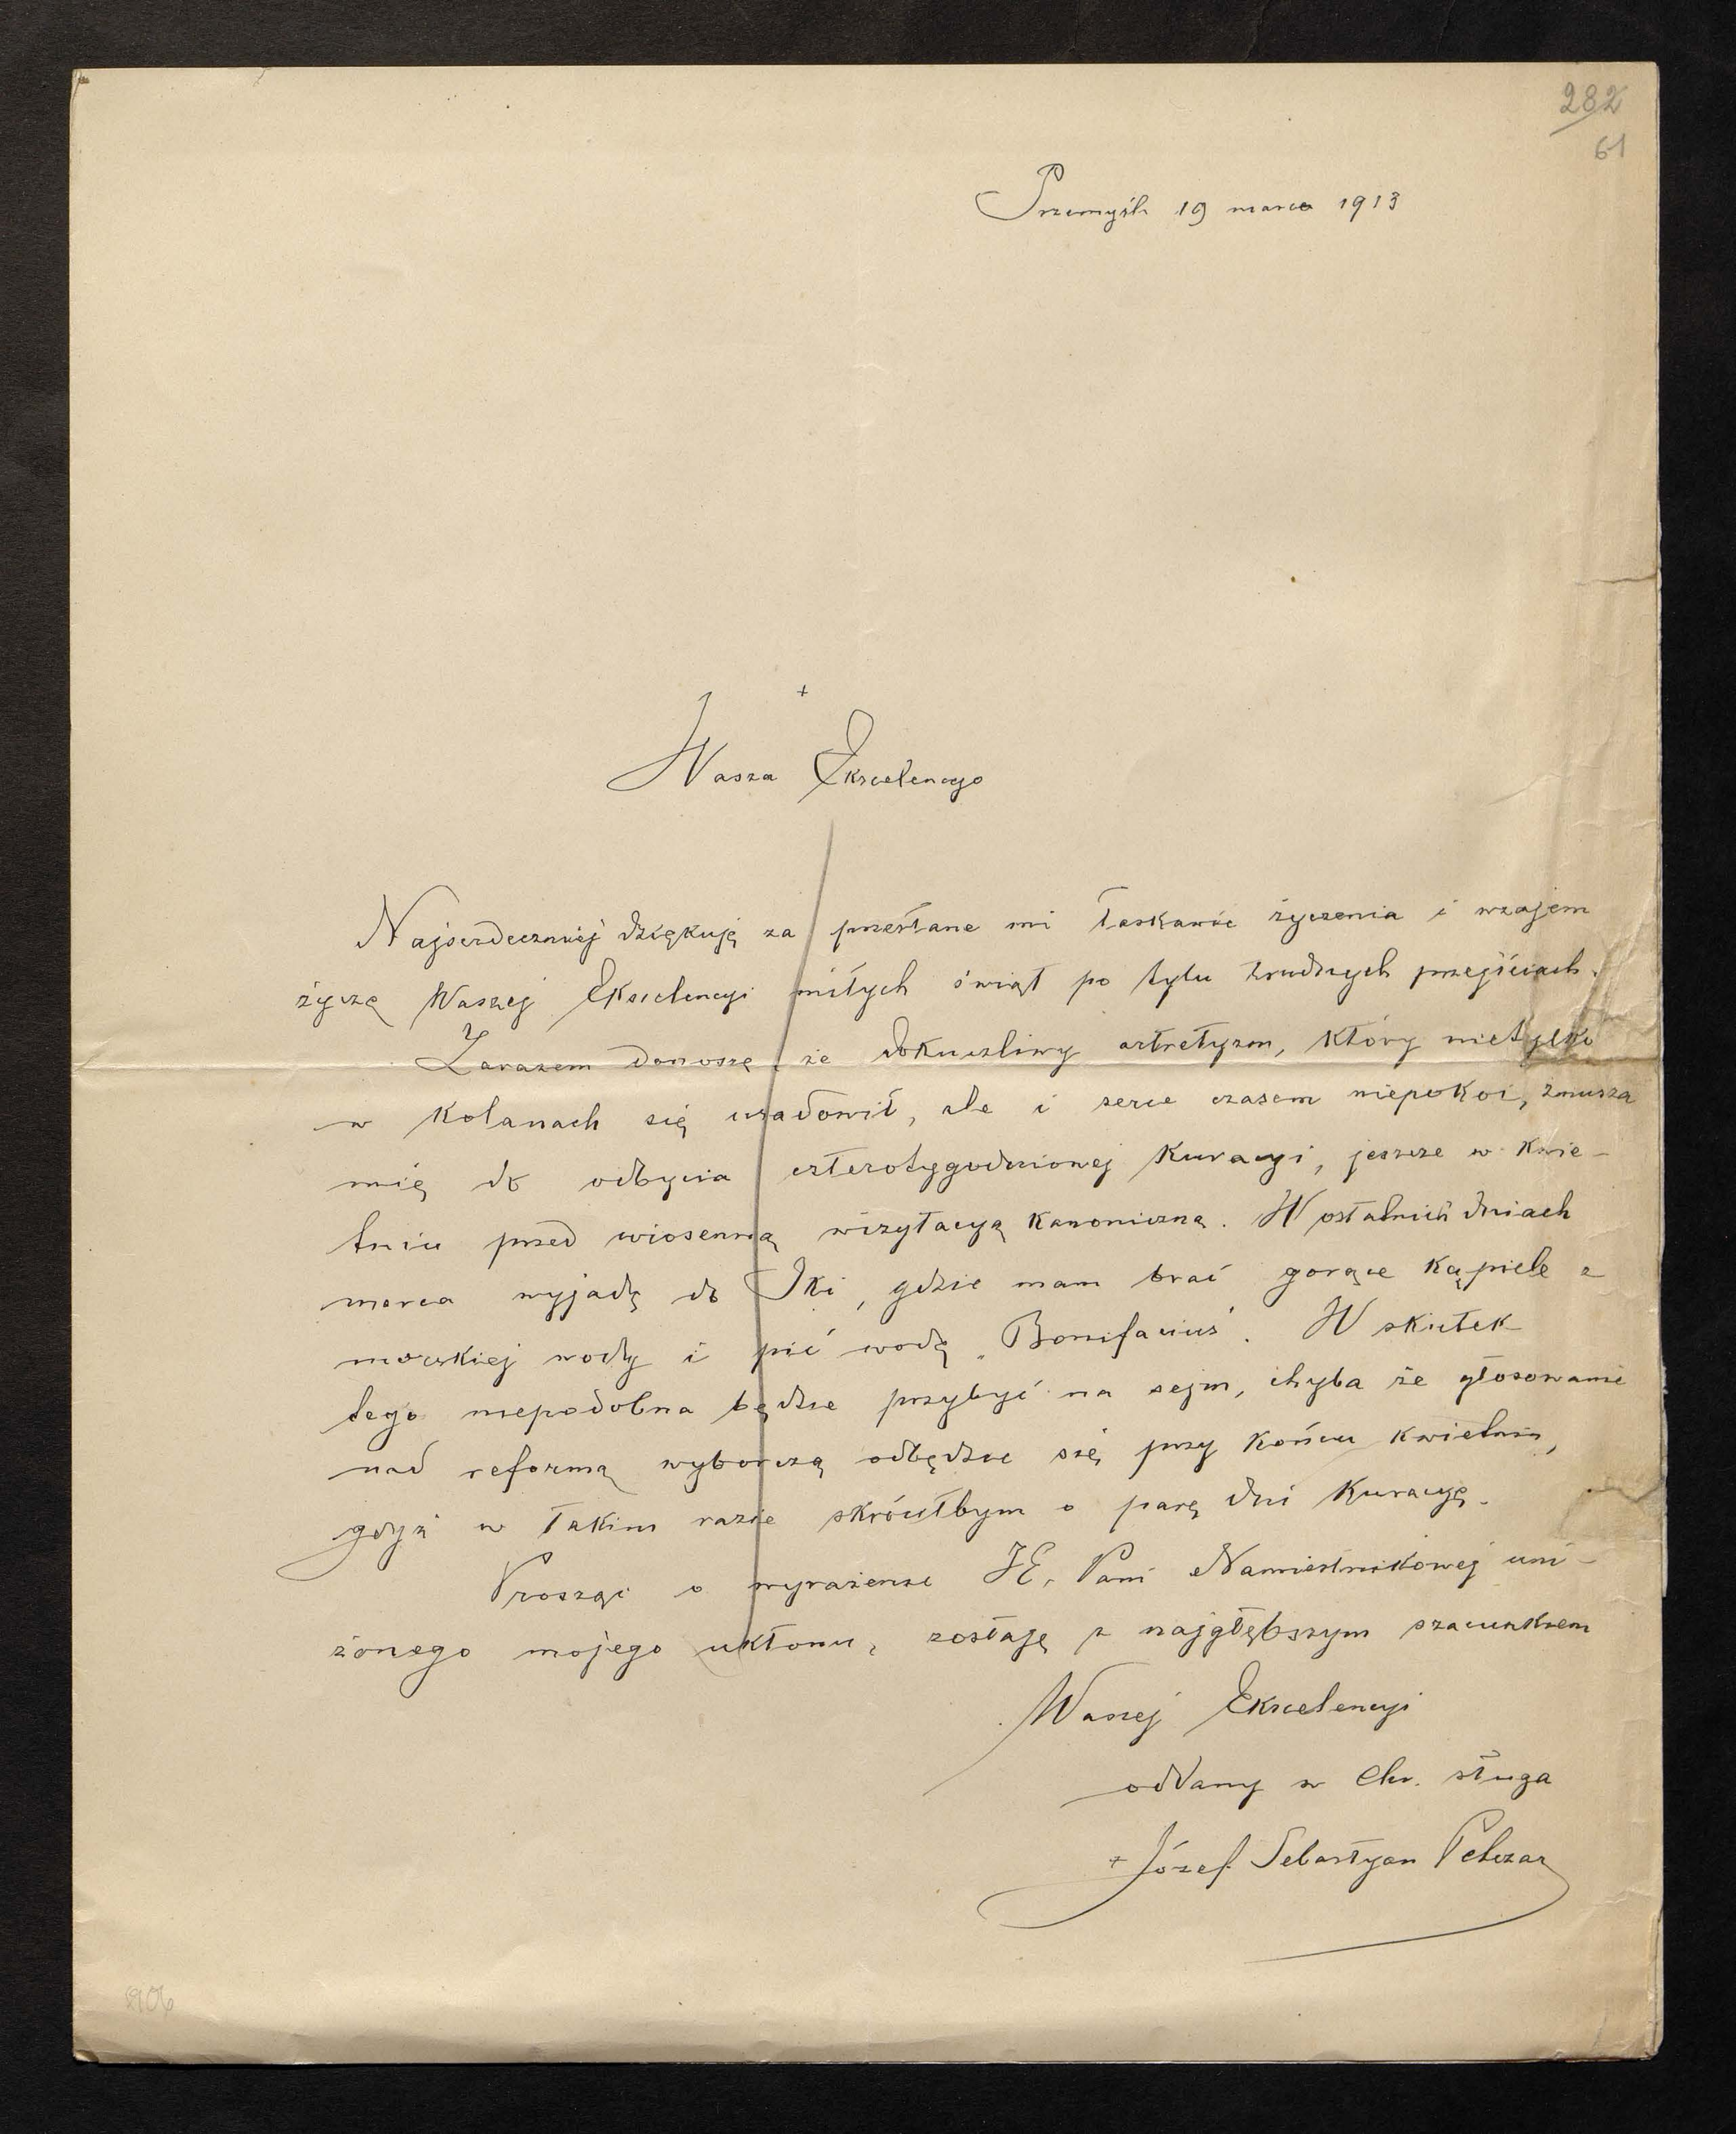 282
61
Przemyśl 19 marca 1913
+
Wasza Ekscelencyo
Najserdeczniej dziękuję za przesłane mi łaskawie życzenia i wzajem
życzę Waszej Ekscelencyi miłych świąt po tylu trudnych przejściach.
Zarazem donoszę, że dokuczliwy artretyzm, który nietylko
w kolanach się usadowił, ale i serce czasem niepokoi, zmusza
mię do odbycia czterotygodniowej kuracyi, jeszcze w kwie-
tniu przed wiosenną wizytacyą kanoniczną. W ostatnich dniach
marca wyjadę do Iki, gdzie mam brać gorące kąpiele z
morskiej wody i pić wodę „Bonifacius". W skutek
tego niepodobna będzie przybyć na sejm, chyba że głosowanie
nad reformą wyborczą odbędzie się przy końcu kwietnia,
gdyż w takim razie skróciłbym o parę dni kuracyę.
Prosząc o wyrażenie JE. Pani Namiestnikowej uni-
żonego mojego ukłonu, zostaję z najgłębszym szacunkiem
Waszej Ekscelencyi
oddany w Chr. sługa
+ Józef Sebastyan Pelczar